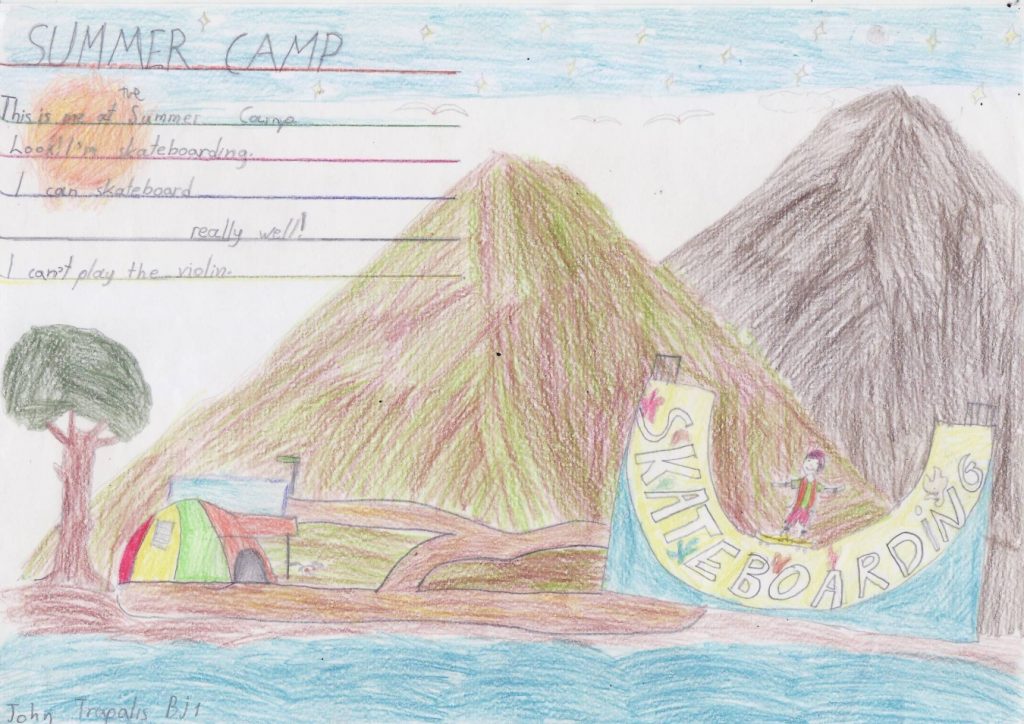 SUMMER CAMP
the
This is me at Summer Camp.
Look! I'm skateboarding.
I can skateboard
really well!
I can't play the violin.
SKATEBOARDiNG
John Trapalis BJ1